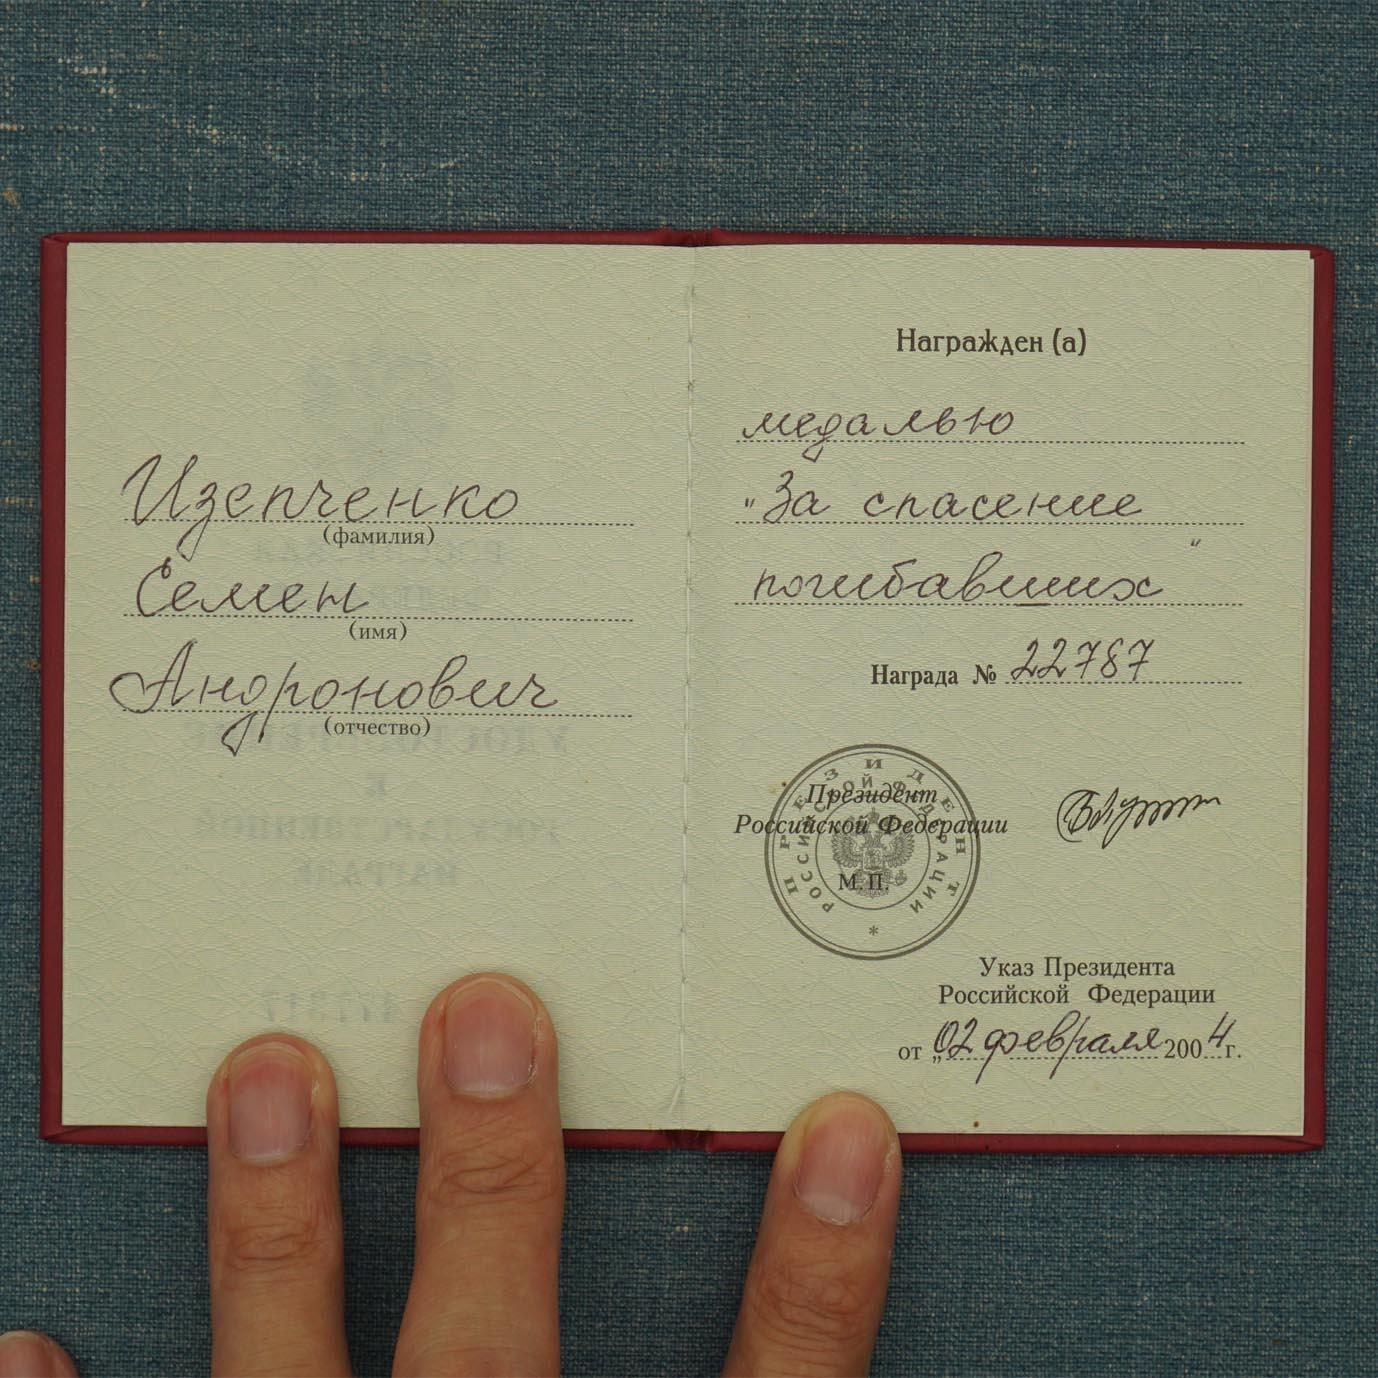 Изепченко
(фамилия)
Семен
(имя)
Андронович
(отчество)
Награжден (а)
медалью
"За спасение
погибавших"
Награда № 22787
ПРЕЗИДЕНТ
РОССИЙСКОЙ ФЕДЕРАЦИИ
*
Президент
Российской Федерации
М.П.
Указ Президента
Российской Федерации
от „02 февраля 2004 г.